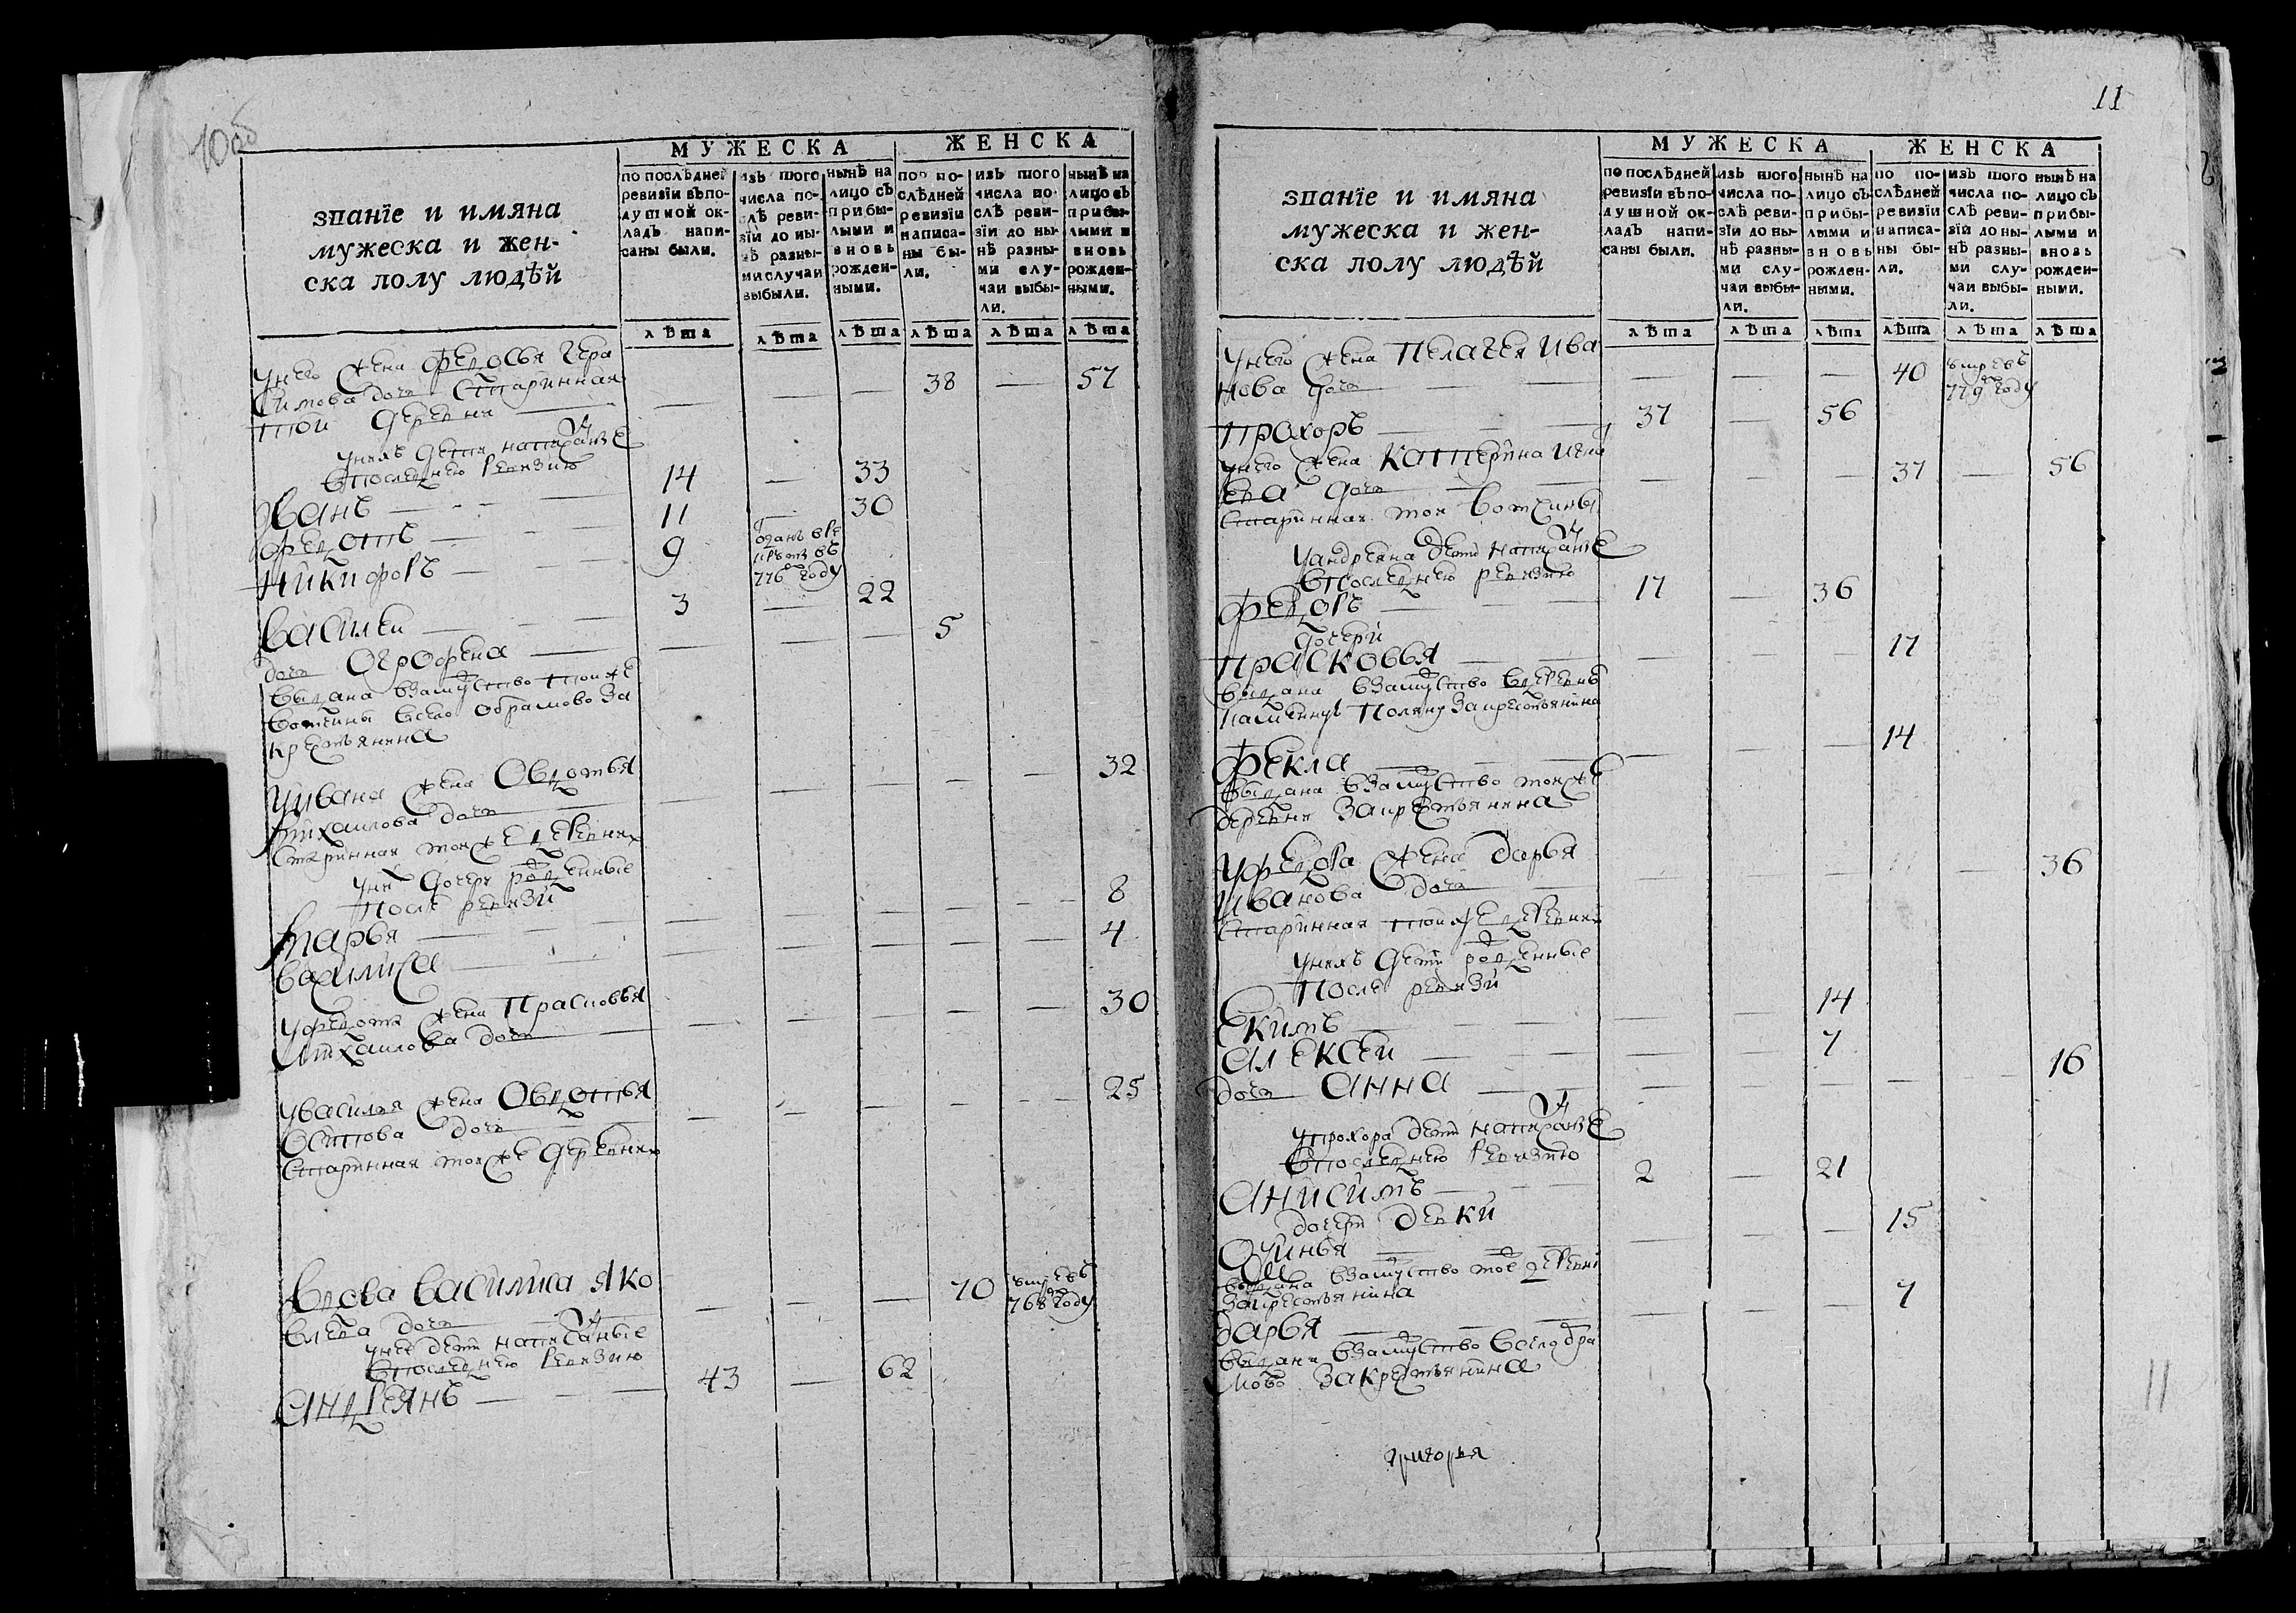 10 об
МУЖЕСКА ЖЕНСКА
званїе и имяна мужеска и женска полу людѣй
по послѣдней ревизїи въ подушной окладъ написаны были.
изъ того числа послѣ ревизїи до нынѣ разными случаи выбыли.
нынѣ на лицо съ прибылыми и вновь рожденными.
по послѣдней ревизїи написаны были.
изъ того числа послѣ ревизїи до нынѣ разными случаи выбыли.
нынѣ на лицо съ прибылыми и вновь рожденными.
лѣта лѣта лѣта лѣта лѣта лѣта
у него жена Федосья Гера
симова дочь старинная — — — 38 — 57
той деревни
у них дети написаные
в последнею ревизию
Иванъ 14 — 33
Федотъ 11 — 30
Никифоръ 9 отданъ в рекруты въ 776 году
Василей 3 — 22
дочь Огрофена — — — 5
выдана взамужство той же
вотчины в село Обрамово за
крестьянина
у Ивана жена Овдотья — — — — — 32
Михайлова дочь
старинная той же деревни
у них дочери рожденные
после ревизи
Марья — — — — — 8
Василиса — — — — — 4
у Федота жена Прасковья — — — — — 30
Михайлова дочь
у Василья жена Овдотья — — — — — 25
Осипова дочь
старинная той же деревни
вдова Василиса Яко — — — 70 умре въ 768 году
влева дочь
у нее дети написаные
в последнею ревизию
Андреянъ 43 — 62
11
МУЖЕСКА ЖЕНСКА
званїе и имяна мужеска и женска полу людѣй
по послѣдней ревизїи въ подушной окладъ написаны были.
изъ того числа послѣ ревизїи до нынѣ разными случаи выбыли.
нынѣ на лицо съ прибылыми и вновь рожденными.
по послѣдней ревизїи написаны были.
изъ того числа послѣ ревизїи до нынѣ разными случаи выбыли.
нынѣ на лицо съ прибылыми и вновь рожденными.
лѣта лѣта лѣта лѣта лѣта лѣта
у него жена Пелагея Ива
нова дочь — — — 40 умре въ 779 году
Прохоръ 37 — 56
у него жена Катерина Игна
ева дочь — — — 37 — 56
старинная той вотчины
у Андреяна дети написаные
в последнею ревизию
Федоръ 17 — 36
дочери
Прасковья — — — 17
выдана взамужство в деревню
Поляну за крестьянина
Фекла — — — 14
выдана взамужство той же
деревни за крестьянина
у Федора жена Дарья — — — — — 36
Иванова дочь
старинная той же деревни
у них дети рожденные
после ревизи
Екимъ — — 14
Алексей — — 7
дочь Анна — — — — — 16
у Прохора дети написаные
в последнею ревизию
Анисимъ 2 — 21
дочери девки
Офинья — — — 15
выдана взамужство тое деревни
за крестьянина
Дарья — — — 7
выдана взамужство в село Обра
мово за крестьянина
Григорья
11